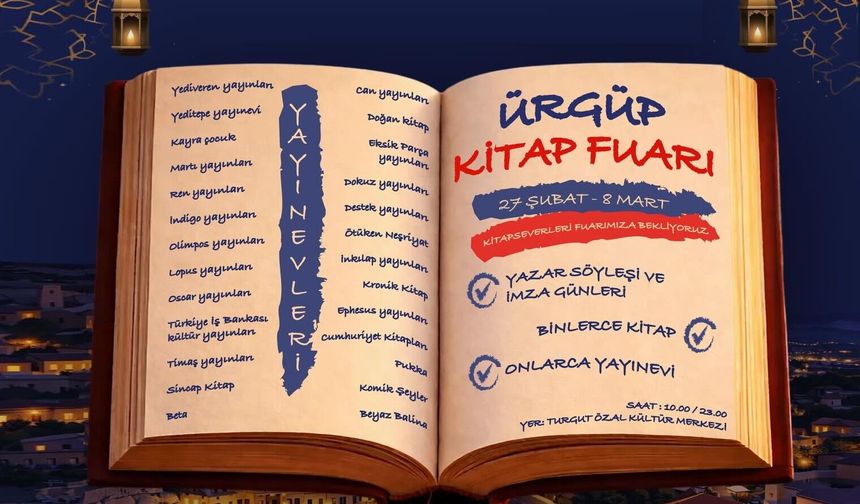 Yediveren yayınları
Yeditepe yayınevi
Kayra çocuk
Martı yayınları
Ren yayınları
İndigo yayınları
Olimpos yayınları
Lopus yayınları
Oscar yayınları
Türkiye İş Bankası
kültür yayınları
Timaş yayınları
Sincap Kitap
Beta
YAYINEVLERİ
Can yayınları
Doğan kitap
Eksik Parça
yayınları
Dokuz yayınları
Destek yayınları
Ötüken Neşriyat
İnkılap yayınları
Kronik Kitap
Ephesus yayınları
Cumhuriyet Kitapları
Pukka
Komik Şeyler
Beyaz Balina
ÜRGÜP
KİTAP FUARI
27 ŞUBAT - 8 MART
KİTAPSEVERLERİ FUARIMIZA BEKLİYORUZ.
YAZAR SÖYLEŞİ VE
İMZA GÜNLERİ
BİNLERCE KİTAP
ONLARCA YAYINEVİ
SAAT : 10.00 / 23.00
YER: TURGUT ÖZAL KÜLTÜR MERKEZİ